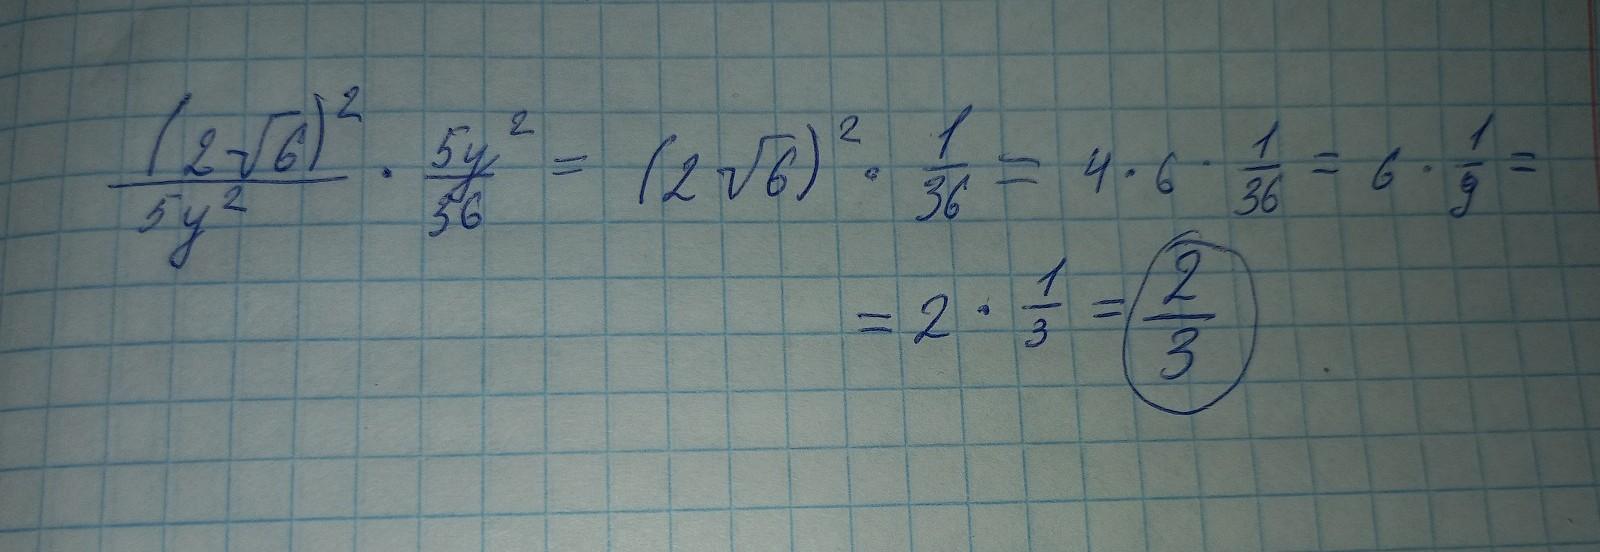 (2√6)²/5y² · 5y²/36 = (2√6)² · 1/36 = 4 · 6 · 1/36 = 6 · 1/9 =
= 2 · 1/3 = 2/3